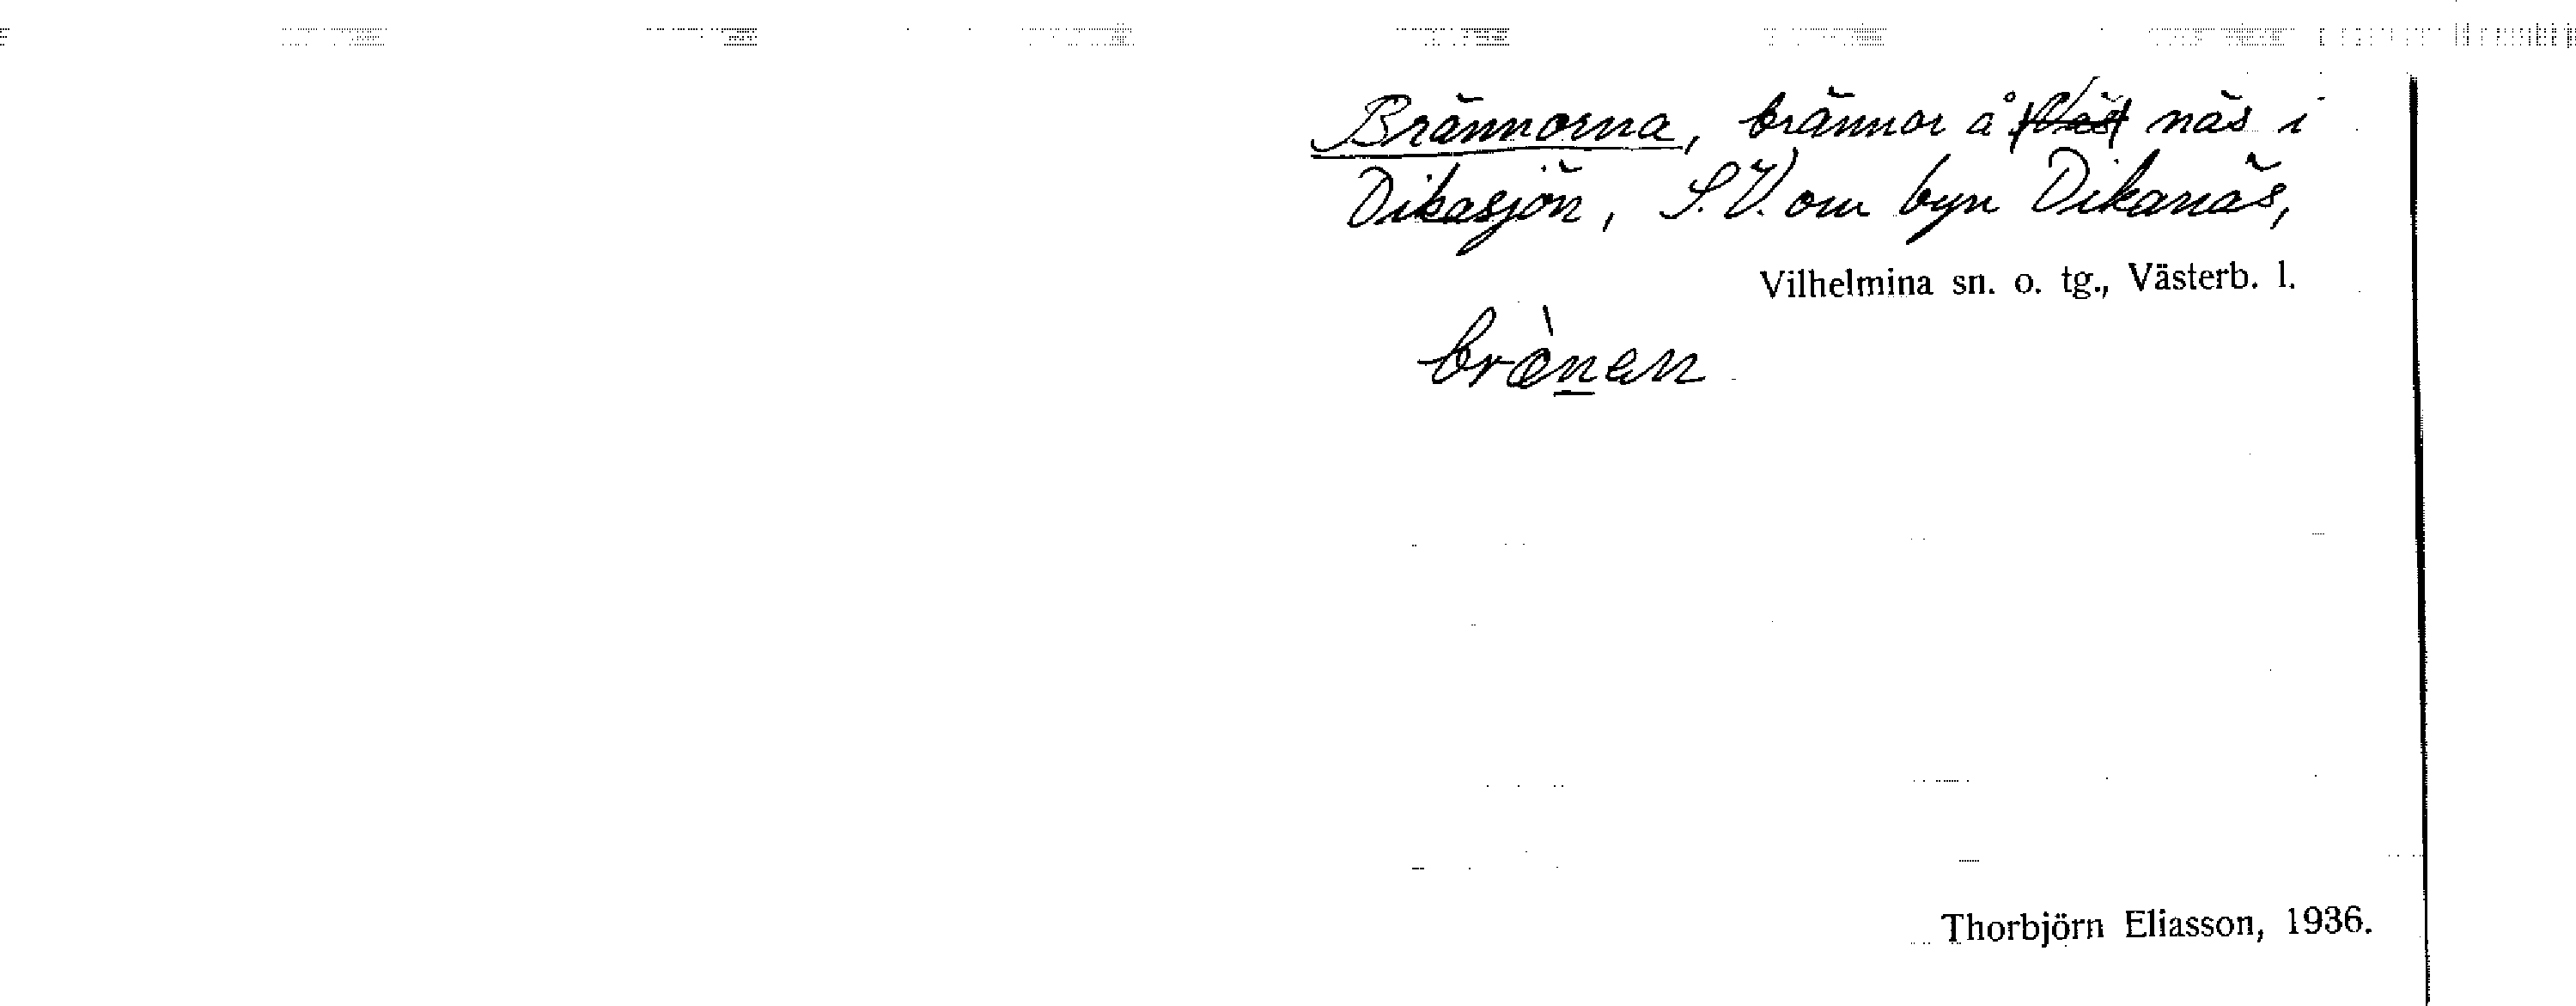 Brännorna, brännor å näs i
Dikasjön, S.V. om byn Dikanäs,
Vilhelmina sn. o. tg., Västerb. l.
brä̀nen
Thorbjörn Eliasson, 1936.